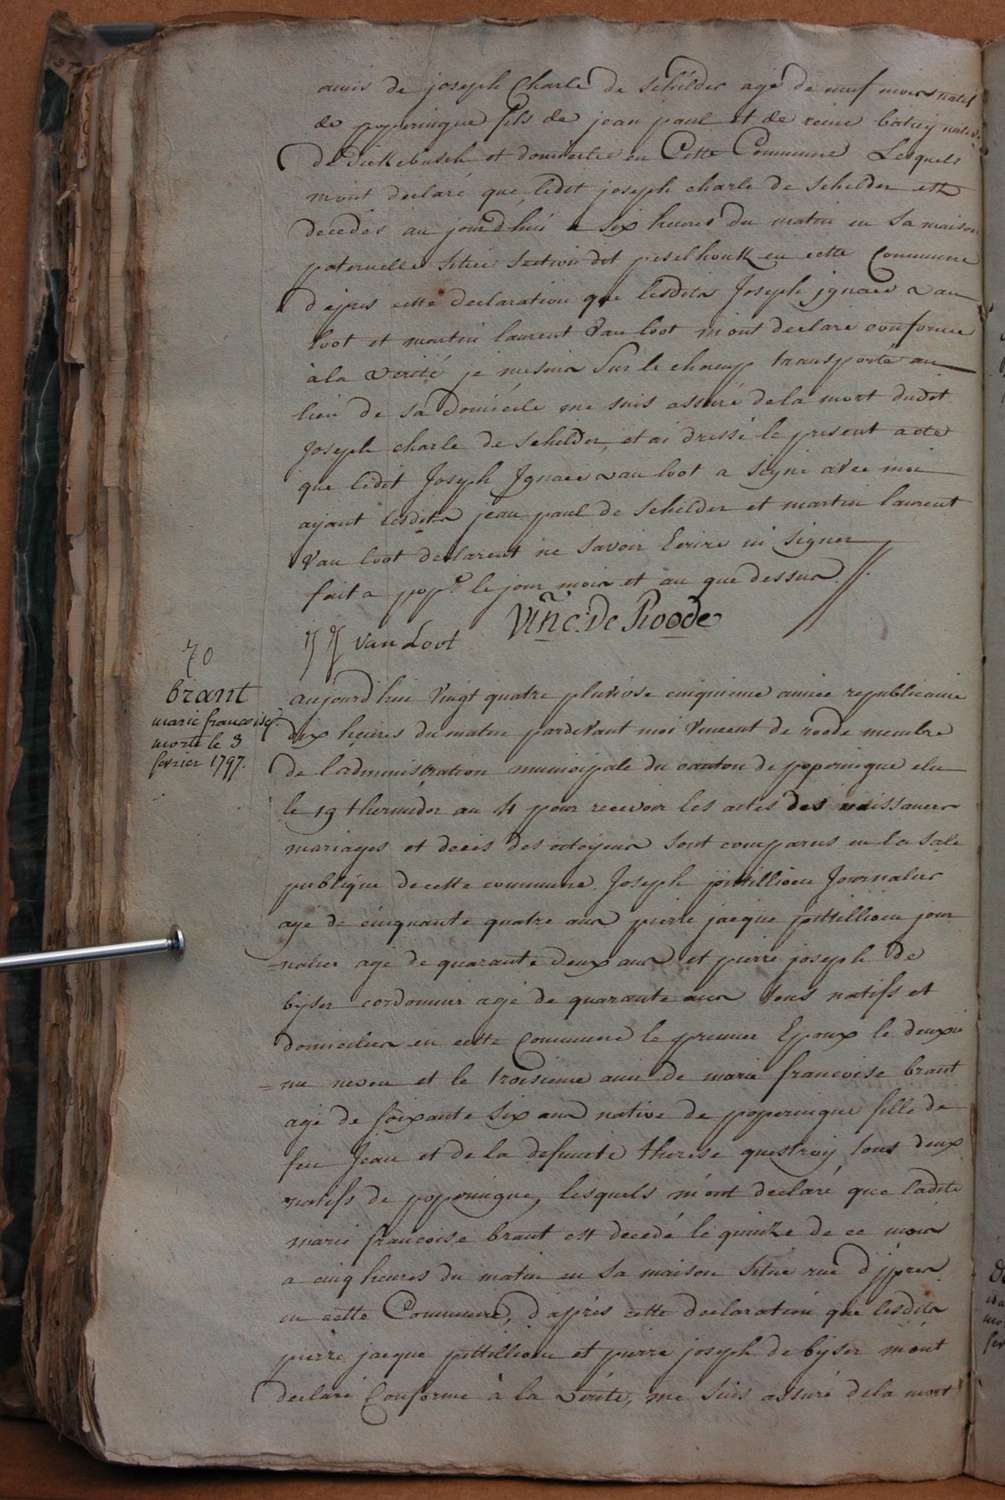 amis de joseph Charle de Schilder agé de neuf mois natif
de poperingue fils de jean paul et de reine natif
de Dickebusch et domicilie en Cette Commune Lesquels
m'ont declaré que ledit joseph charle de Schilder est
decedés au jourd'hui a six heures du matin en sa maison
paternelle sitüe section dit peselhouk en cette Commune
d'apres cette declaration que lesdits Joseph jgnace van
loot et martin laurent Van loot m'ont declaré conforme
à la verité je me suis sur le champ transporté au
lieu de sa domicile me suis assuré de la mort dudet
Joseph charle de Schilder, et ai dressé le present acte
que ledit Joseph Jgnace van loot a signe avec moi
ajant lesdits jean paul de Schilder et martin laurent
Van loot declarent ne savoir Ecrire ni signer
fait a pop.e le jour mois et an que dessus
J J Van Loot Vinc: De Roode
70
brant
marie francoise
morte le 3
fevrier 1797.
aujourd'hui Vingt quatre pluviose cinquieme année republicaine
dix heures du matin pardevant moi Vincent de roode membre
de l'administration municipale du canton de poperingue elu
le 19 thermidor an 4 pour recevoir les actes des naissances
mariages et deces des citoyens sont comparus en la sale
publique de cette commune Joseph pittillioen Journalier
agé de cinquante quatre ans pierre jacque pittillioen jour
=nalier agé de quarante deux ans et pierre joseph de
byser cordonnier agé de quarante ans tous natifs et
domicilies en cette Commune le premier Epoux le deuxie
=me neveu et le troisieme ami de marie francoise brant
agé de soixante six ans native de poperingue fille de
feu Jean et de la defunte therese questroy tous deux
natifs de poperingue, lesquels m'ont declaré que ladite
marie francoise brant est decedé le quinze de ce mois
a cinq heures du matin en sa maison sitüe rue d'ypres
en cette Commune, d'après cette declaration que lesdits
pierre jacque pittillioen et pierre joseph de byser m'ont
declaré Conforme à la vérité, me suis assuré de la mort